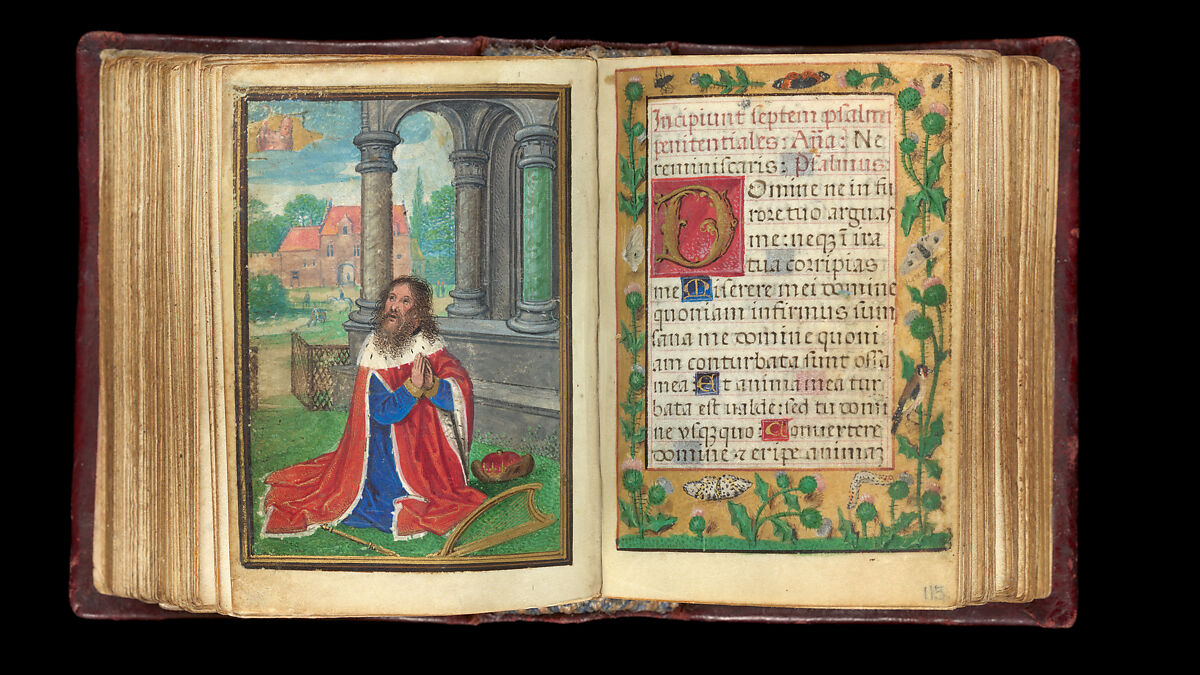 Incipiunt septem psalmi
penitentiales: Añã: Ne
reminiscaris: Psalmus:
Domine ne in fu
rore tuo arguas
me: neqʒ ĩ ira
tua corripias
me Miserere mei domine
quoniam infirmus sum
sana me domine quoni
am conturbata sunt ossa
mea: Et anima mea tur
bata est valde: sed tu domi
ne vsqʒquo: Conuertere
domine ⁊ eripe animaʒ
115